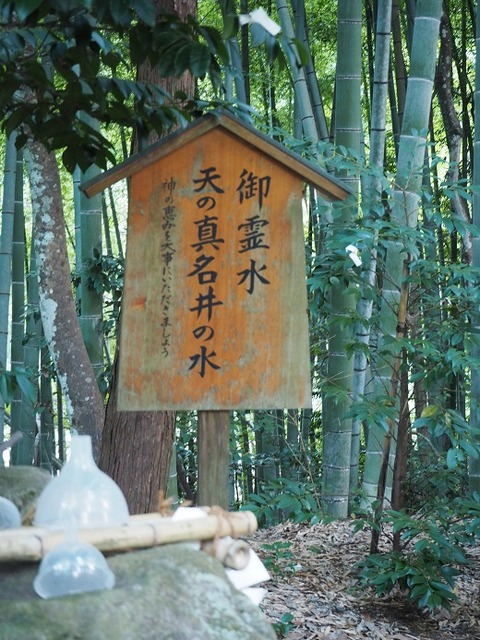 御霊水
天の真名井の水
神の恵みを大事にいただきましょう